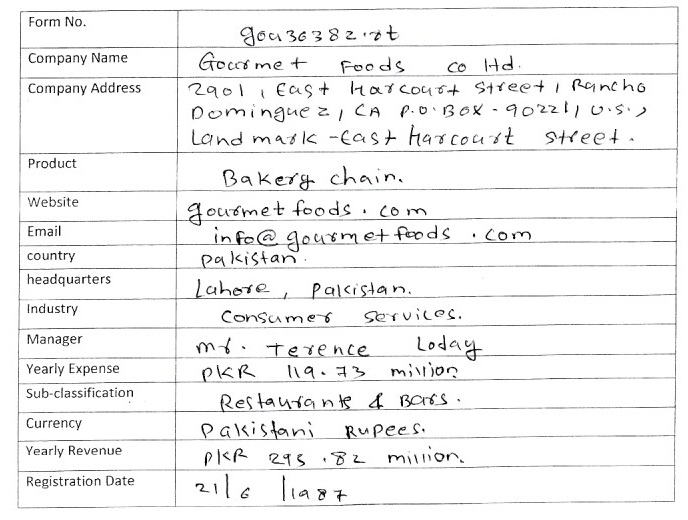 Form No. gou30382.rt
Company Name Gourmet Foods co ltd.
Company Address 2901, East Harcourt Street, Rancho
Dominguez, CA P.O.BOX - 90221, U.S.,
Landmark - East Harcourt street.
Product Bakery chain.
Website gourmetfoods.com
Email info@gourmetfoods.com
country pakistan.
headquarters Lahore, Pakistan.
Industry Consumer services.
Manager mr. Terence Loday
Yearly Expense PKR 119.73 million
Sub-classification Restaurants & Bars.
Currency Pakistani Rupees.
Yearly Revenue PKR 295.82 million.
Registration Date 21/6/1987